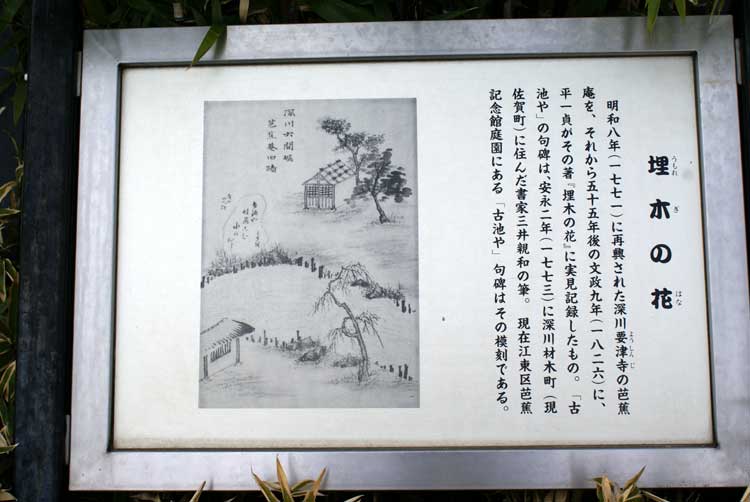 埋木の花
うもれ ぎ はな
明和八年(一七七一)に再興された深川要津寺の芭蕉
ようしんじ
庵を、それから五十五年後の文政九年(一八二六)に、
平一貞がその著『埋木の花』に実見記録したもの。「古
池や」の句碑は、安永二年(一七七三)に深川材木町(現
佐賀町)に住んだ書家三井親和の筆。現在江東区芭蕉
記念館庭園にある「古池や」句碑はその模刻である。
深川大間堀
芭蕉庵旧蹟
古池や
蛙飛こむ
水のおと